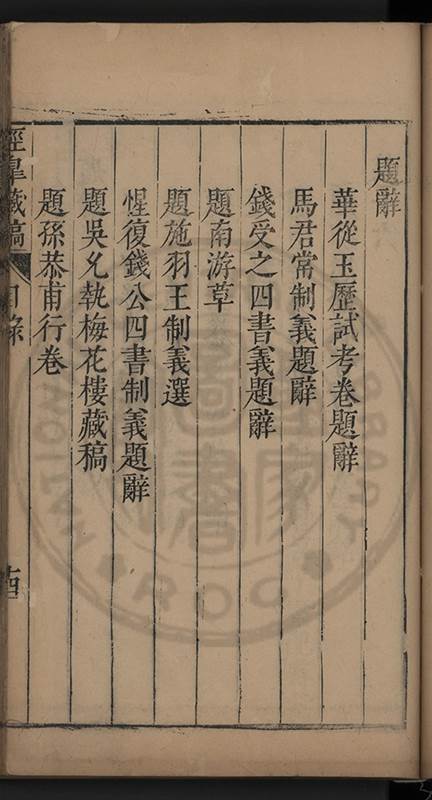 題辭
華從玉歷試考卷題辭
馬君常制義題辭
錢受之四書義題辭
題南游草
題施羽王制義選
惺復錢公四書制義題辭
題吳允執梅花樓藏稿
題孫恭甫行卷
藏稿
目錄